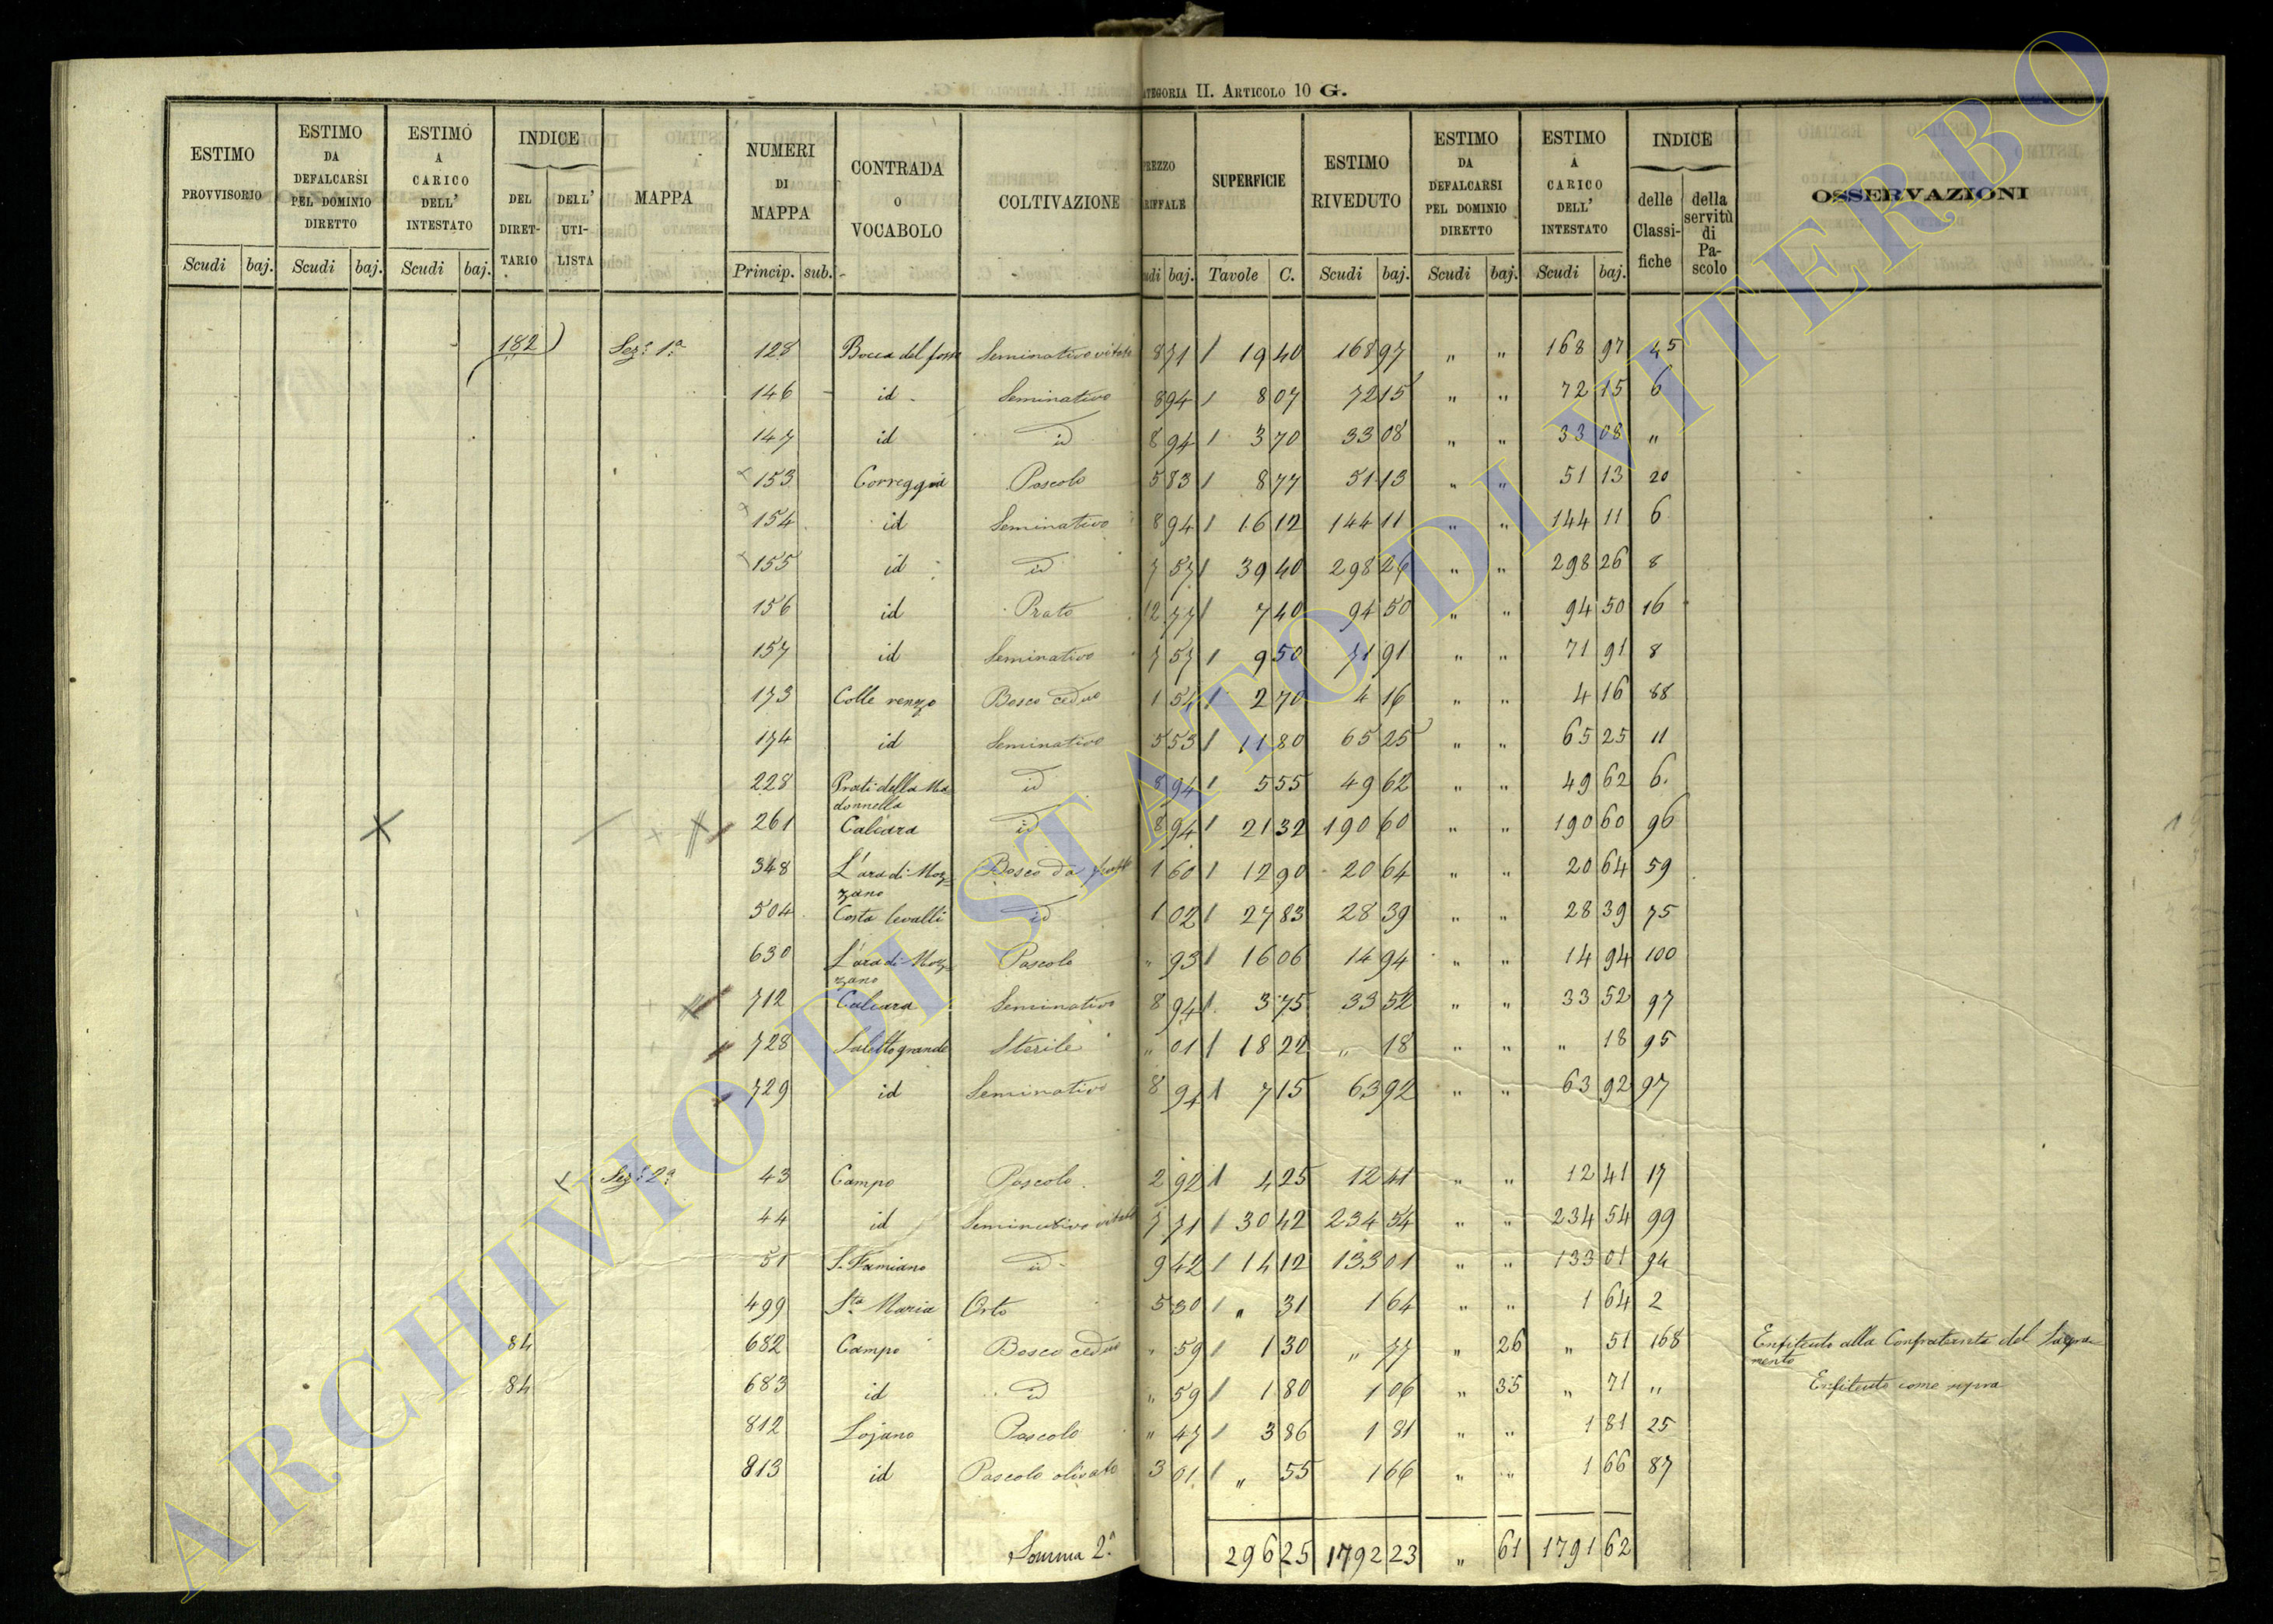 CATEGORIA II. ARTICOLO 10 G.
ESTIMO PROVVISORIO Scudi baj.
ESTIMO DA DEFALCARSI PEL DOMINIO DIRETTO Scudi baj.
ESTIMO A CARICO DELL' INTESTATO Scudi baj.
INDICE DEL DIRET-TARIO DELL' UTI-LISTA
MAPPA
NUMERI DI MAPPA Princip. sub.
CONTRADA O VOCABOLO
COLTIVAZIONE
PREZZO TARIFFALE Scudi baj.
SUPERFICIE Tavole C.
ESTIMO RIVEDUTO Scudi baj.
ESTIMO DA DEFALCARSI PEL DOMINIO DIRETTO Scudi baj.
ESTIMO A CARICO DELL' INTESTATO Scudi baj.
INDICE delle Classi-fiche della servitù di Pa-scolo
OSSERVAZIONI
182 Sez.e 1.a 128 Bocca del fosso Seminativo vitato 8 71 19 40 168 97 " " 168 97 45
146 id Seminativo 8 94 8 07 72 15 " " 72 15 6
147 id id 8 94 3 70 33 08 " " 33 08 "
153 Correggia Pascolo 5 83 8 77 51 13 " " 51 13 20
154 id Seminativo 8 94 16 12 144 11 " " 144 11 6
155 id id 7 57 39 40 298 26 " " 298 26 8
156 id Prato 12 77 7 40 94 50 " " 94 50 16
157 id Seminativo 7 57 9 50 71 91 " " 71 91 8
173 Colle renzo Bosco ceduo 1 54 2 70 4 16 " " 4 16 88
174 id Seminativo 5 53 11 80 65 25 " " 65 25 11
228 Prati della Ma
donnella id 8 94 5 55 49 62 " " 49 62 6.
261 Calcara id 8 94 21 32 190 60 " " 190 60 96
348 L'ara di Moz-
zano Bosco da frutto 1 60 12 90 20 64 " " 20 64 59
504 Costa levalli id 1 02 27 83 28 39 " " 28 39 75
630 L'ara di Moz-
zano Pascolo " 93 16 06 14 94 " " 14 94 100
712 Calcara Seminativo 8 94 3 75 33 52 " " 33 52 97
728 Salettogrande Sterile " 01 18 22 " 18 " " " 18 95
729 id Seminativo 8 94 7 15 63 92 " " 63 92 97
Sez.e 2.a 43 Campo Pascolo 2 92 4 25 12 41 " " 12 41 17
44 id Seminativo vitato 7 71 30 42 234 54 " " 234 54 99
51 S. Famiano id 9 42 14 12 133 01 " " 133 01 94
499 S.ta Maria Orto 5 30 " 31 1 64 " " 1 64 2
84 682 Campo Bosco ceduo " 59 1 30 " 77 " 26 " 51 168 Enfiteuto alla Confraternita del Sagra-
mento
84 683 id id " 59 1 80 1 06 " 35 " 71 " Enfiteuto come sopra
812 Lojano Pascolo " 47 3 86 1 81 " " 1 81 25
813 id Pascolo olivato 3 01 " 55 1 66 " " 1 66 87
Somma 2.a 296 25 1792 23 " 61 1791 62
ARCHIVIO DI STATO DI VITERBO